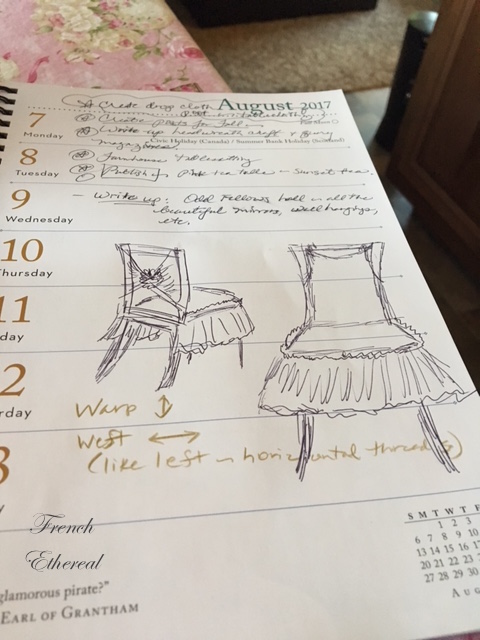 Create drop cloth
August 2017
7
Monday
Create posts for
Write up
Civic Holiday (Canada) / Summer Bank Holiday (Scotland)
8
Tuesday
Farmhouse Tablesetting
Publish Pink tea table -
9
Wednesday
- Write up: Odd Fellows hall - all the
beautiful mirrors, wall hangings,
etc.
10
Thursday
11
day
2
rday
Warp ↕
Weft ↔
(like left - horizontal threads)
3
y
French
Ethereal
glamorous pirate?"
EARL OF GRANTHAM
S M T W T F
1 2 3
6 7 8 9 10
13 14 15 16 17
20 21 22 23 24
27 28 29 30